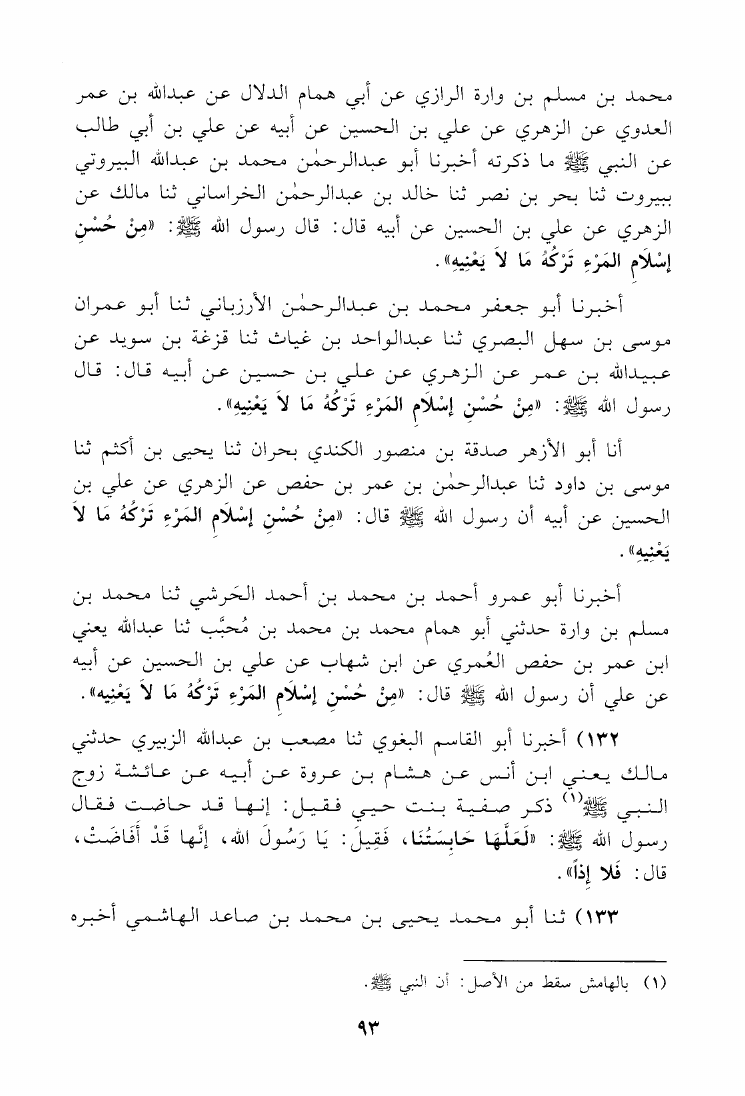 محمد بن مسلم بن وارة الرازي عن أبي همام الدلال عن عبدالله بن عمر
العدوي عن الزهري عن علي بن الحسين عن أبيه عن علي بن أبي طالب
عن النبي ﷺ ما ذكرته أخبرنا أبو عبدالرحمٰن محمد بن عبدالله البيروتي
ببيروت ثنا بحر بن نصر ثنا خالد بن عبدالرحمٰن الخراساني ثنا مالك عن
الزهري عن علي بن الحسين عن أبيه قال: قال رسول الله ﷺ: «مِنْ حُسْنِ
إسْلَامِ المَرْءِ تَرْكُهُ مَا لاَ يَعْنِيهِ».
أخبرنا أبو جعفر محمد بن عبدالرحمٰن الأرزباني ثنا أبو عمران
موسى بن سهل البصري ثنا عبدالواحد بن غياث ثنا قزعة بن سويد عن
عبيدالله بن عمر عن الزهري عن علي بن حسين عن أبيه قال: قال
رسول الله ﷺ: «مِنْ حُسْنِ إسْلَامِ المَرْءِ تَرْكُهُ مَا لاَ يَعْنِيهِ».
أنا أبو الأزهر صدقة بن منصور الكندي بحران ثنا يحيى بن أكثم ثنا
موسى بن داود ثنا عبدالرحمٰن بن عمر بن حفص عن الزهري عن علي بن
الحسين عن أبيه أن رسول الله ﷺ قال: «مِنْ حُسْنِ إسْلَامِ المَرْءِ تَرْكُهُ مَا لاَ
يَعْنِيهِ».
أخبرنا أبو عمرو أحمد بن محمد بن أحمد الحَرشي ثنا محمد بن
مسلم بن وارة حدثني أبو همام محمد بن محمد بن مُحبَّب ثنا عبدالله يعني
ابن عمر بن حفص العُمري عن ابن شهاب عن علي بن الحسين عن أبيه
عن علي أن رسول الله ﷺ قال: «مِنْ حُسْنِ إسْلَامِ المَرْءِ تَرْكُهُ مَا لاَ يَعْنِيهِ».
١٣٢) أخبرنا أبو القاسم البغوي ثنا مصعب بن عبدالله الزبيري حدثني
مالك يعني ابن أنس عن هشام بن عروة عن أبيه عن عائشة زوج
النبي ﷺ(١) ذكر صفية بنت حيي فقيل: إنها قد حاضت فقال
رسول الله ﷺ: «لَعَلَّهَا حَابِسَتُنَا، فَقِيلَ: يَا رَسُولَ الله، إنَّها قَدْ أَفَاضَتْ،
قال: فَلا إذاً».
١٣٣) ثنا أبو محمد يحيى بن محمد بن صاعد الهاشمي أخبره
(١) بالهامش سقط من الأصل: أن النبي ﷺ.
٩٣